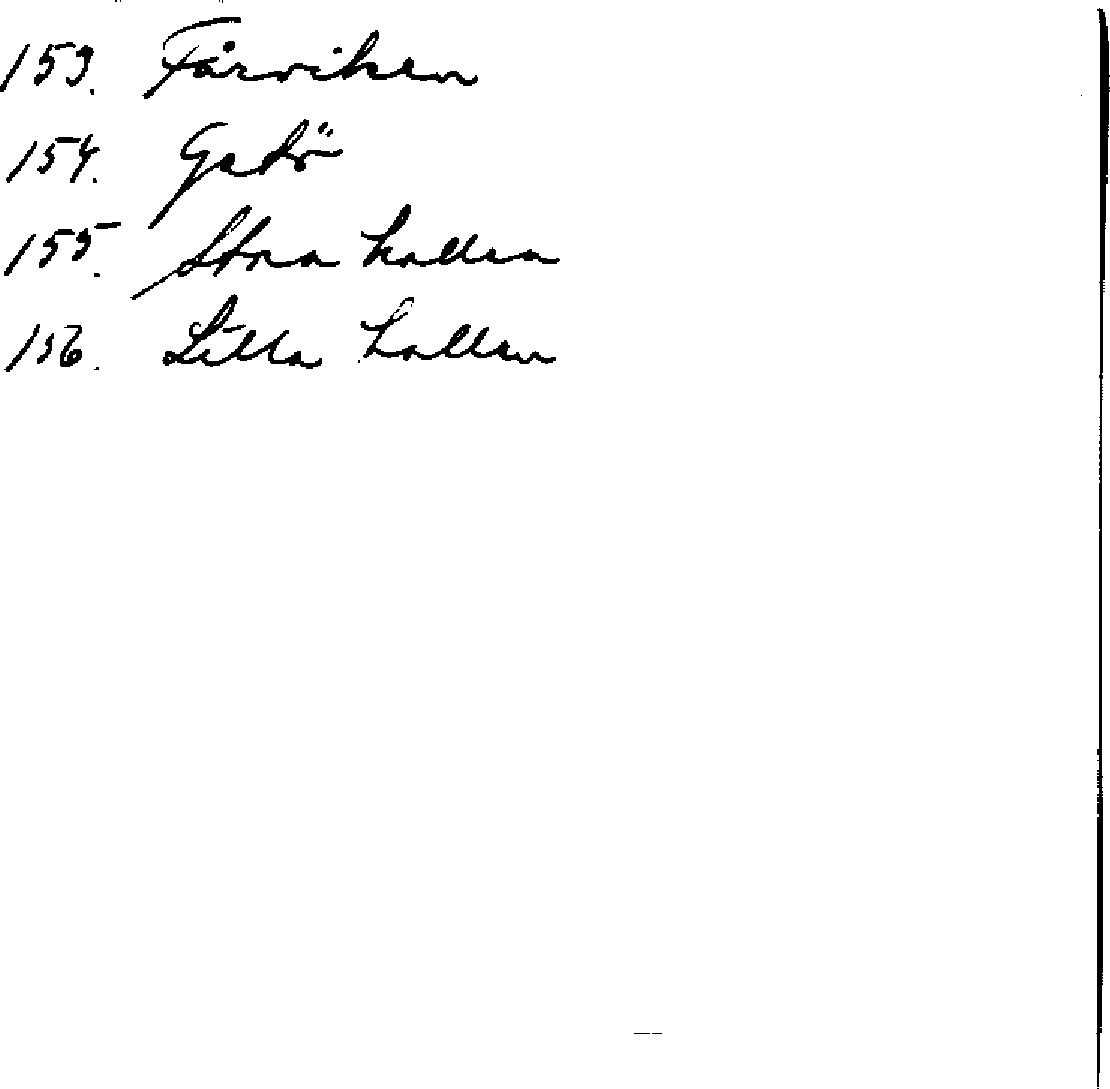 153. Fårviken
154. Getö
155. Stora hallen
156. Lilla hallen